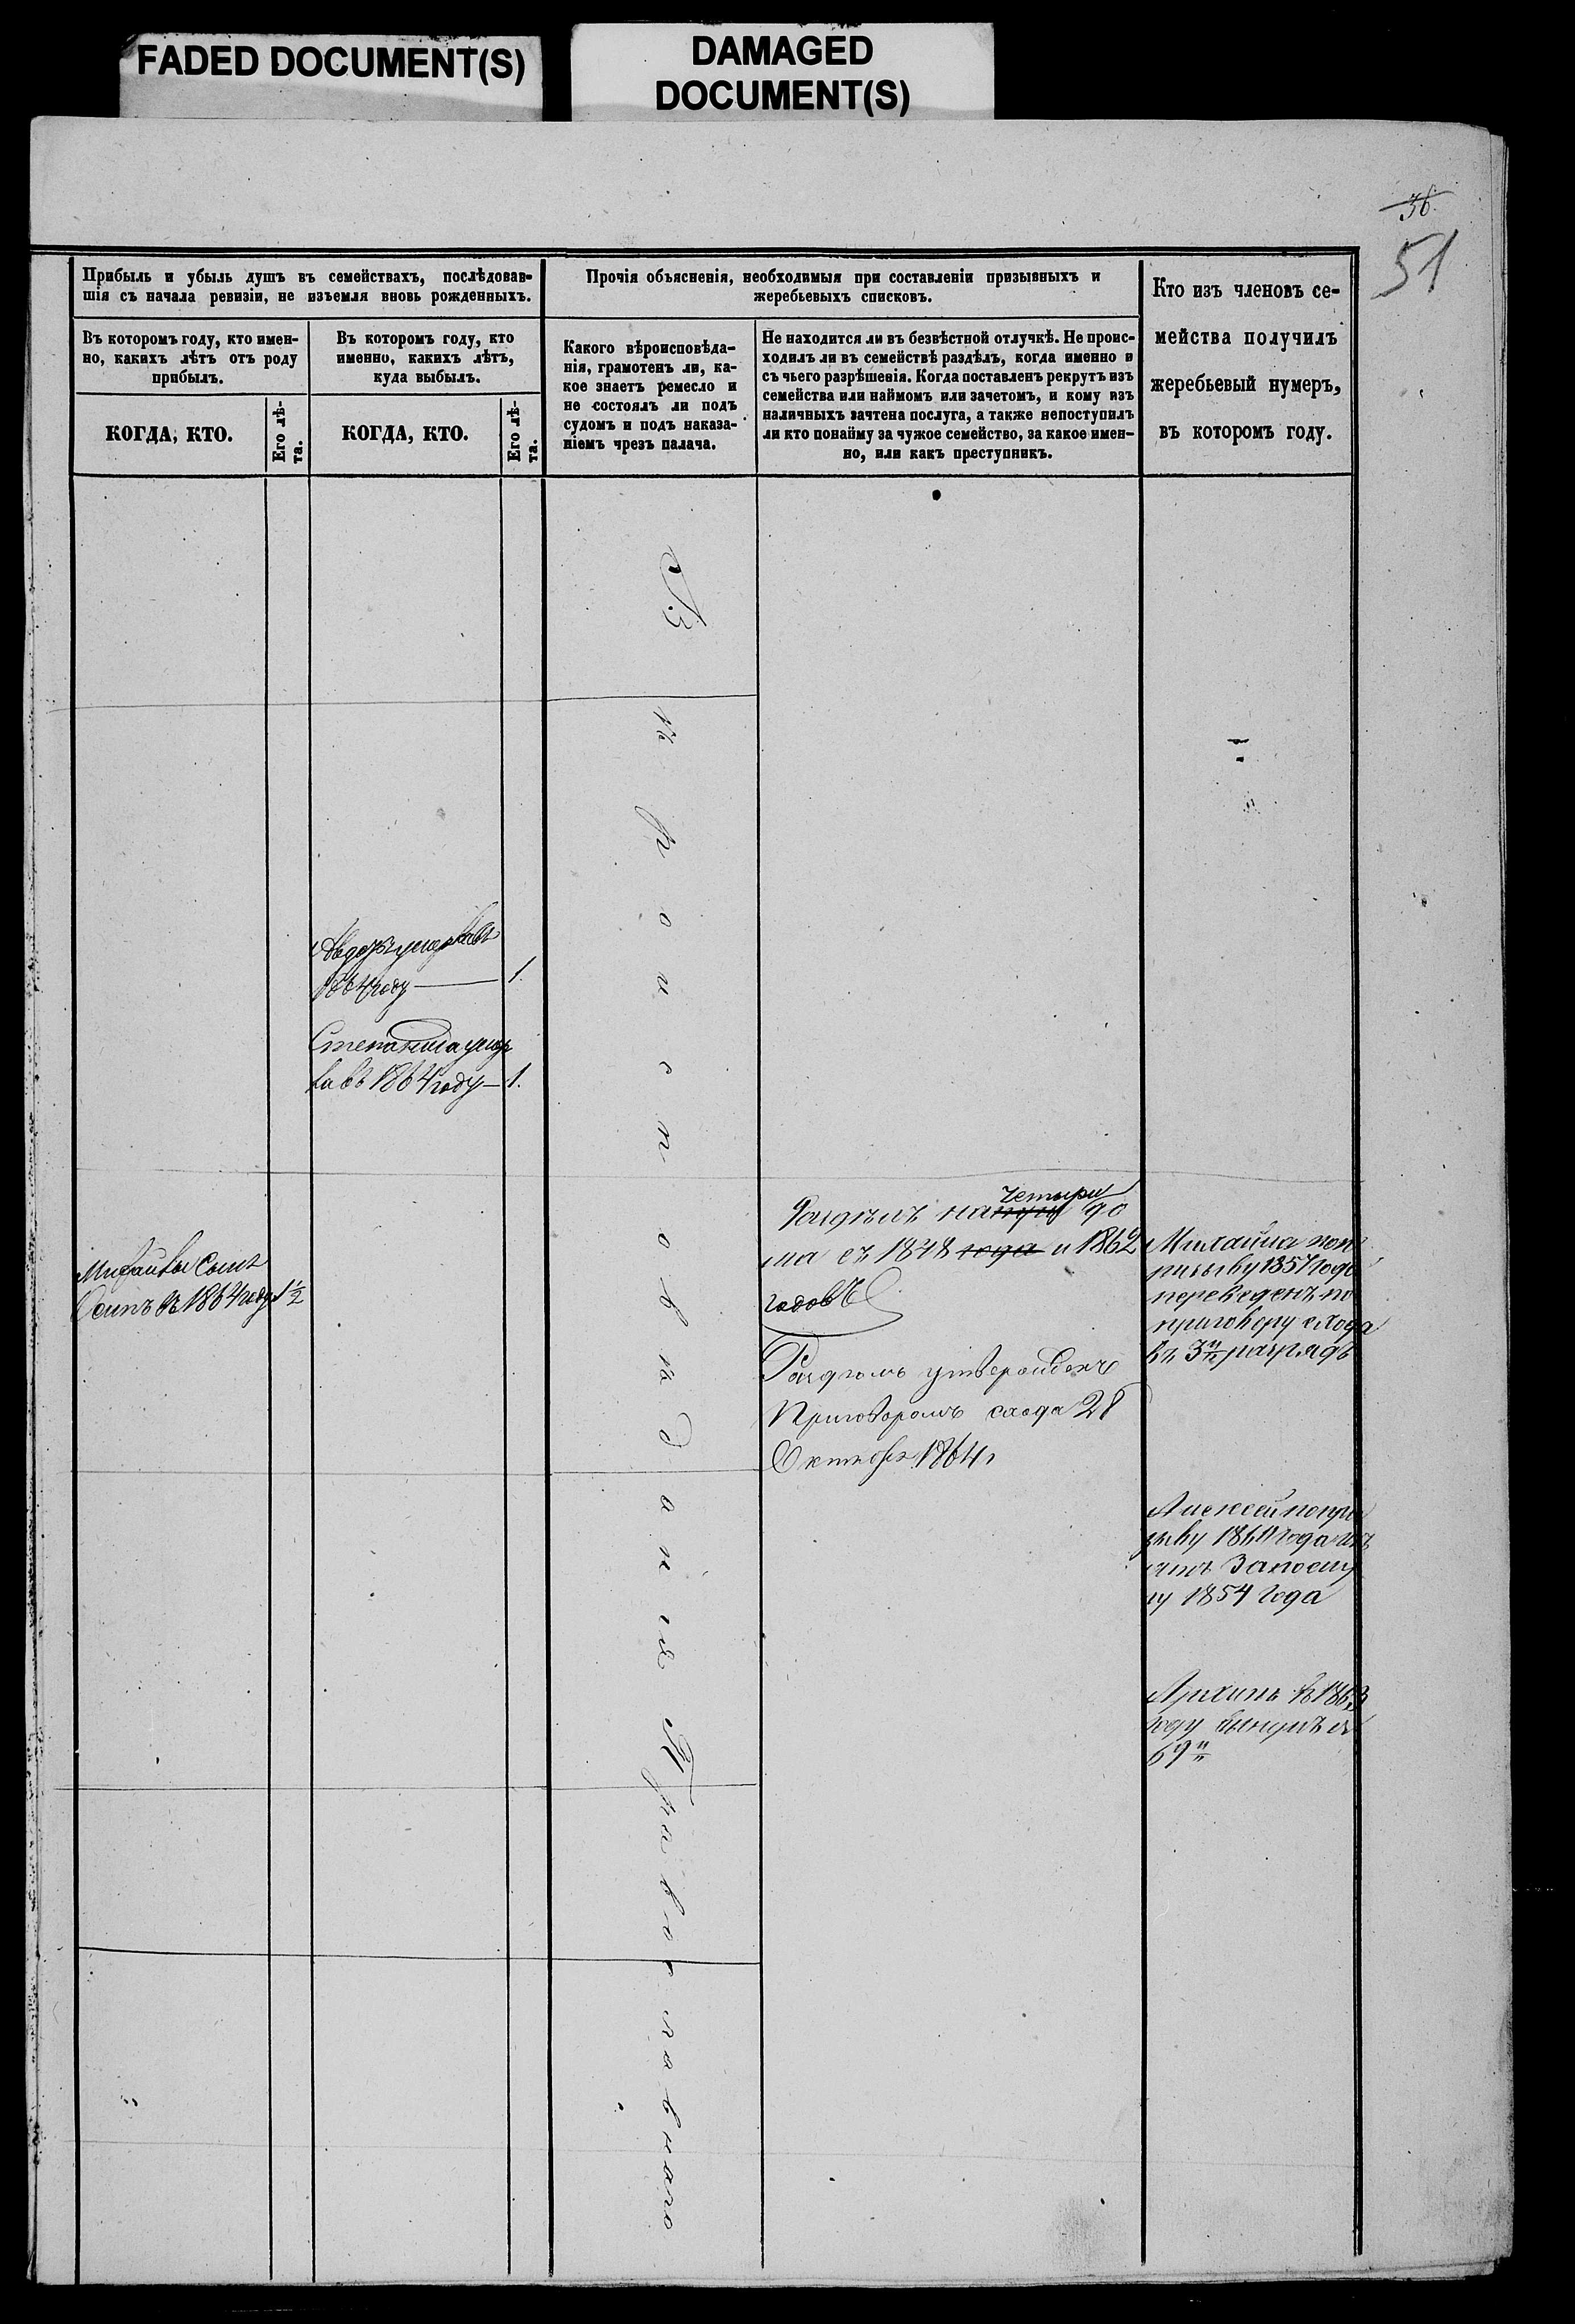 FADED DOCUMENT(S)
DAMAGED
DOCUMENT(S)
36.
51
Прибыль и убыль душъ въ семействахъ, послѣдовав-
шія съ начала ревизіи, не изъемля вновь рожденныхъ.
Въ которомъ году, кто имен-
но, какихъ лѣтъ отъ роду
прибылъ.
КОГДА, КТО.
Его лѣ-
та.
Въ которомъ году, кто
именно, какихъ лѣтъ,
куда выбылъ.
КОГДА, КТО.
Его лѣ-
та.
Прочія объясненія, необходимыя при составленіи призывныхъ и
жеребьевыхъ списковъ.
Какого вѣроисповѣда-
нія, грамотенъ ли, ка-
кое знаетъ ремесло и
не состоялъ ли подъ
судомъ и подъ наказа-
ніемъ чрезъ палача.
Не находится ли въ безвѣстной отлучкѣ. Не проис-
ходилъ ли въ семействѣ раздѣлъ, когда именно и
съ чьего разрѣшенія. Когда поставленъ рекрутъ изъ
семейства или наймомъ или зачетомъ, и кому изъ
наличныхъ зачтена послуга, а также непоступилъ
ли кто понайму за чужое семейство, за какое имен-
но, или какъ преступникъ.
Кто изъ членовъ се-
мейства получилъ
жеребьевый нумеръ,
въ которомъ году.
Вѣроисповѣданія Православнаго
году 1.
Степанида умер
ла въ 1864 году 1.
Михайлы сынъ
Осипъ въ 1864 году 1/2
четыри
Раздѣлъ на до
ма съ 1848 года и 1862
годовъ
Раздѣлъ утвержденъ
Приговоромъ схода 28
Октября 1864
Михайла по
призыву 1857 года
переведенъ по
приговору схода
въ 3й разрядъ
Алексей по при
зыву 1860 года
Запослу
гу 1854 года
Архипъ въ 1863
году вынулъ
69й